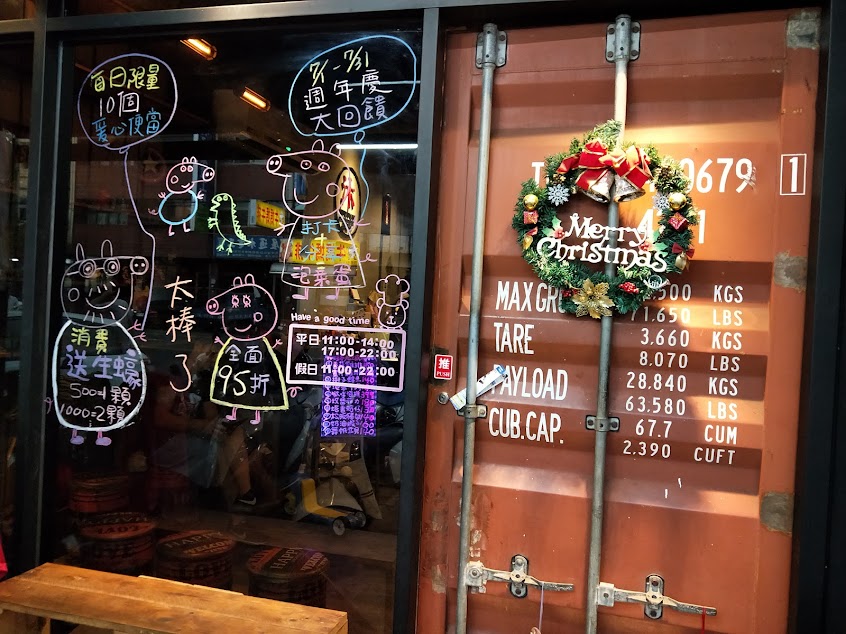 每日限量
10個
愛心便當
7/1 - 7/31
週年慶
大回饋
打卡
+
分享
泡菜蛋
太棒了
消費
送生蠔
500=1顆
1000=2顆
全面
95折
Have a good time
平日11:00-14:00
17:00-22:00
假日11:00-22:00
推
PUSH
Merry
Christmas
0679 1
MAX GR
.500 KGS
71.650 LBS
TARE 3.660 KGS
8.070 LBS
PAYLOAD 28.840 KGS
63.580 LBS
CUB.CAP. 67.7 CUM
2.390 CUFT